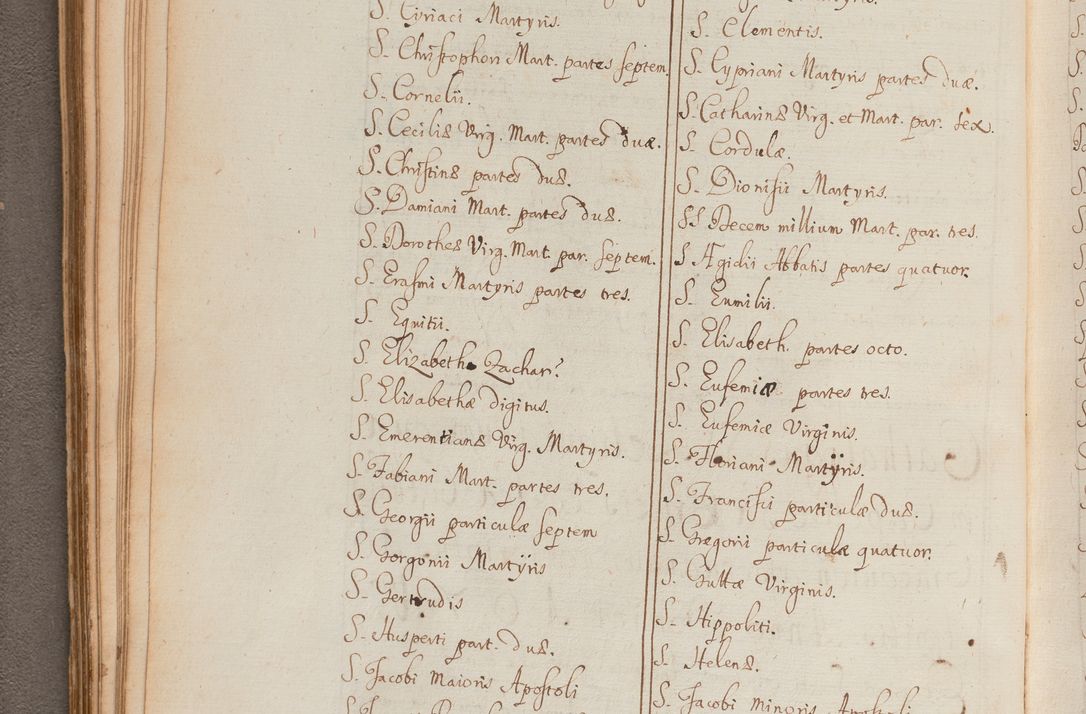 S. Ciriaci Martyris.
S. Christophori Mart. partes septem.
S. Cornelii.
S. Ceciliæ Virg. Mart. partes duæ.
S. Christinæ partes duæ.
S. Damiani Mart. partes duæ.
S. Dorotheæ Virg. Mart. par. septem.
S. Erasmi Martyris partes tres.
S. Equitii.
S. Elizabeth Zachar?
S. Elisabethæ digitus.
S. Emerentianæ Virg. Martyris.
S. Fabiani Mart. partes tres.
S. Georgii particulæ septem
S. Gorgonii Martÿris
S. Gertrudis
S. Husperti part. duæ.
S. Jacobi Maioris Apostoli
S. Clementis.
S. Cypriani Martyris partes duæ.
S. Catharinæ Virg. et Mart. par. sex.
S. Cordulæ.
S. Dionisii Martyris.
SS Decem millium Mart. par. tres.
S Ægidii Abbatis partes quatuor.
S. Eumilii.
S. Elisabeth. partes octo.
S. Eufemiæ partes tres.
S. Eufemiæ Virginis.
S. Floriani Martÿris.
S. Francisii particulæ duæ.
S. Gregorii particulæ quatuor.
S. Guttæ Virginis.
S. Hippoliti.
S. Helenæ.
S. Jacobi minoris Apostoli